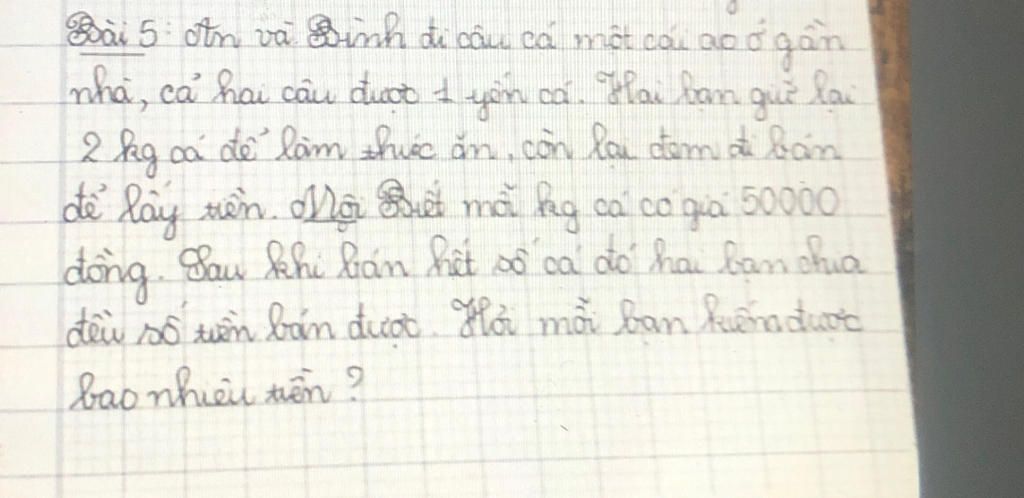 Bài 5: An và Bình đi câu cá một cái ao ở gần
nhà, cả hai câu được 1 yến cá. Hai bạn giữ lại
2 kg cá để làm thức ăn, còn lại đem đi bán
để lấy tiền. Mỗi Biết mỗi kg cá có giá 50000
đồng. Sau khi bán hết số cá đó hai bạn chia
đều số tiền bán được. Hỏi mỗi bạn kiếm được
bao nhiêu tiền?